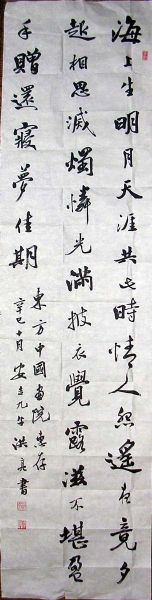 海上生明月天涯共此時情人怨遙夜竟夕
起相思滅燭憐光滿披衣覺露滋不堪盈
手贈還寢夢佳期
東方中國畫院惠存
辛巳十月安吉洪亮書